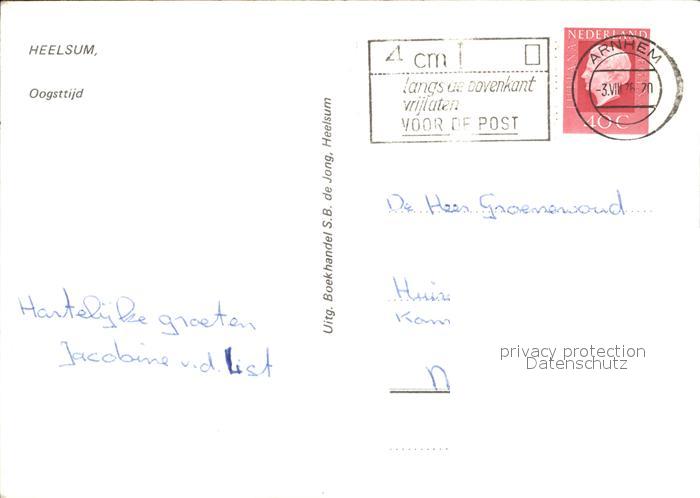 HEELSUM,
Oogsttijd
4 cm
langs de bovenkant
vrijlaten
VOOR DE POST
NEDERLAND
JULIANA
40 C
ARNHEM
-3.VIII.76-20
Uitg. Boekhandel S.B. de Jong, Heelsum
De Heer Groenewoud
Huize
Kam
N
Hartelijke groeten
Jacobine v.d. List
privacy protection
Datenschutz